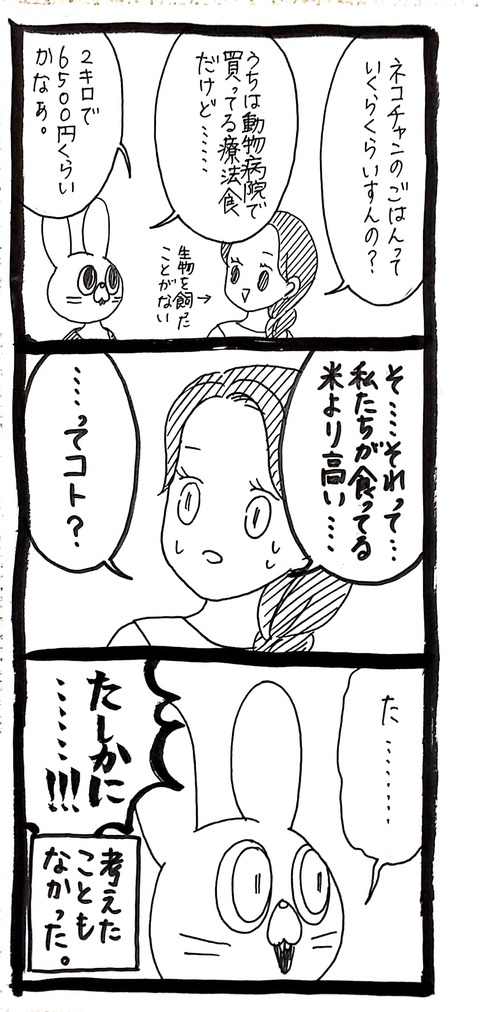 ネコチャンのごはんって
いくらくらいすんの?
うちは動物病院で
買ってる療法食
だけど……
2キロで
6500円くらい
かなぁ。
生物を飼った
ことがない
→
そ……それって…
私たちが食ってる
米より高い……
……ってコト?
た…………
たしかに
……!!!
考えた
ことも
なかった。